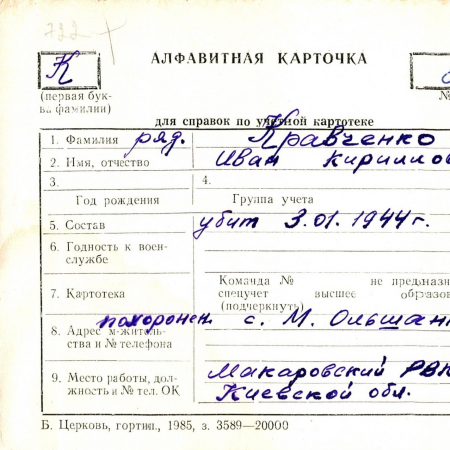 722
АЛФАВИТНАЯ КАРТОЧКА
К
(первая бук-
ва фамилии)
№
для справок по учетной картотеке
1. Фамилия ряд. Кравченко
2. Имя, отчество Иван Кириллов
3.
4.
Год рождения
Группа учета
5. Состав убит 3.01.1944г.
6. Годность к воен-
службе
Команда № не предназн
7. Картотека спецучет высшее образов
(подчеркнуть)
похоронен с. М. Ольшан
8. Адрес м-житель-
ства и № телефона
9. Место работы, дол-
жность и № тел. ОК
Макаровский РВК
Киевской обл.
Б. Церковь, гортип., 1985, з. 3589—20000